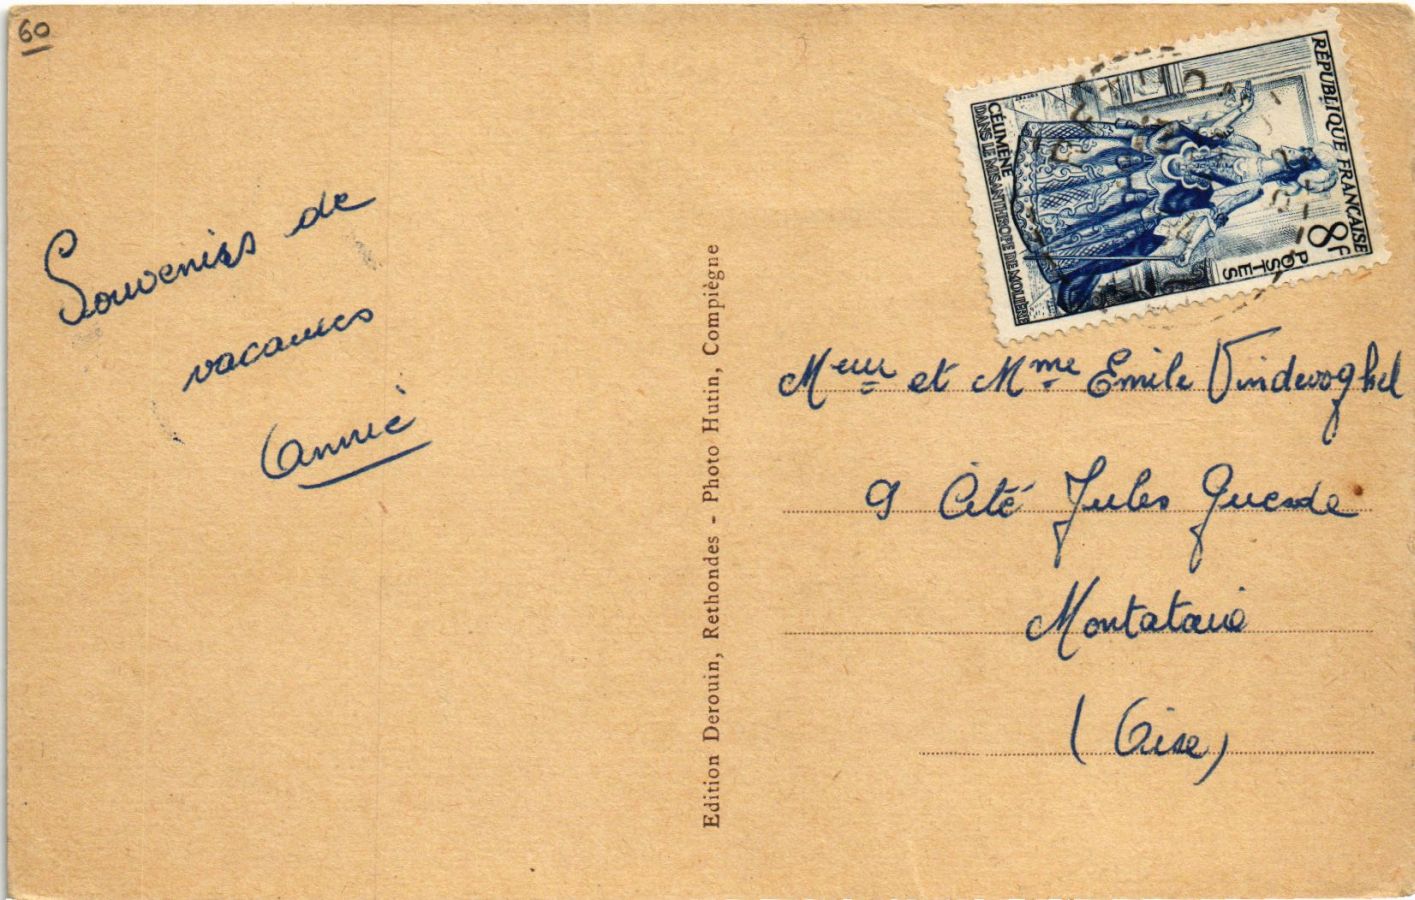 60
Souvenirs de
vacances
Annie
Edition Derouin, Rethondes - Photo Hutin, Compiègne
RÉPUBLIQUE FRANÇAISE
8F
POSTES
CÉLIMÈNE
DANS LE MISANTHROPE DE MOLIÈRE
Meur et Mme Emile Vindevoghel
9 Cité Jules Guesde
Montataire
(Oise)